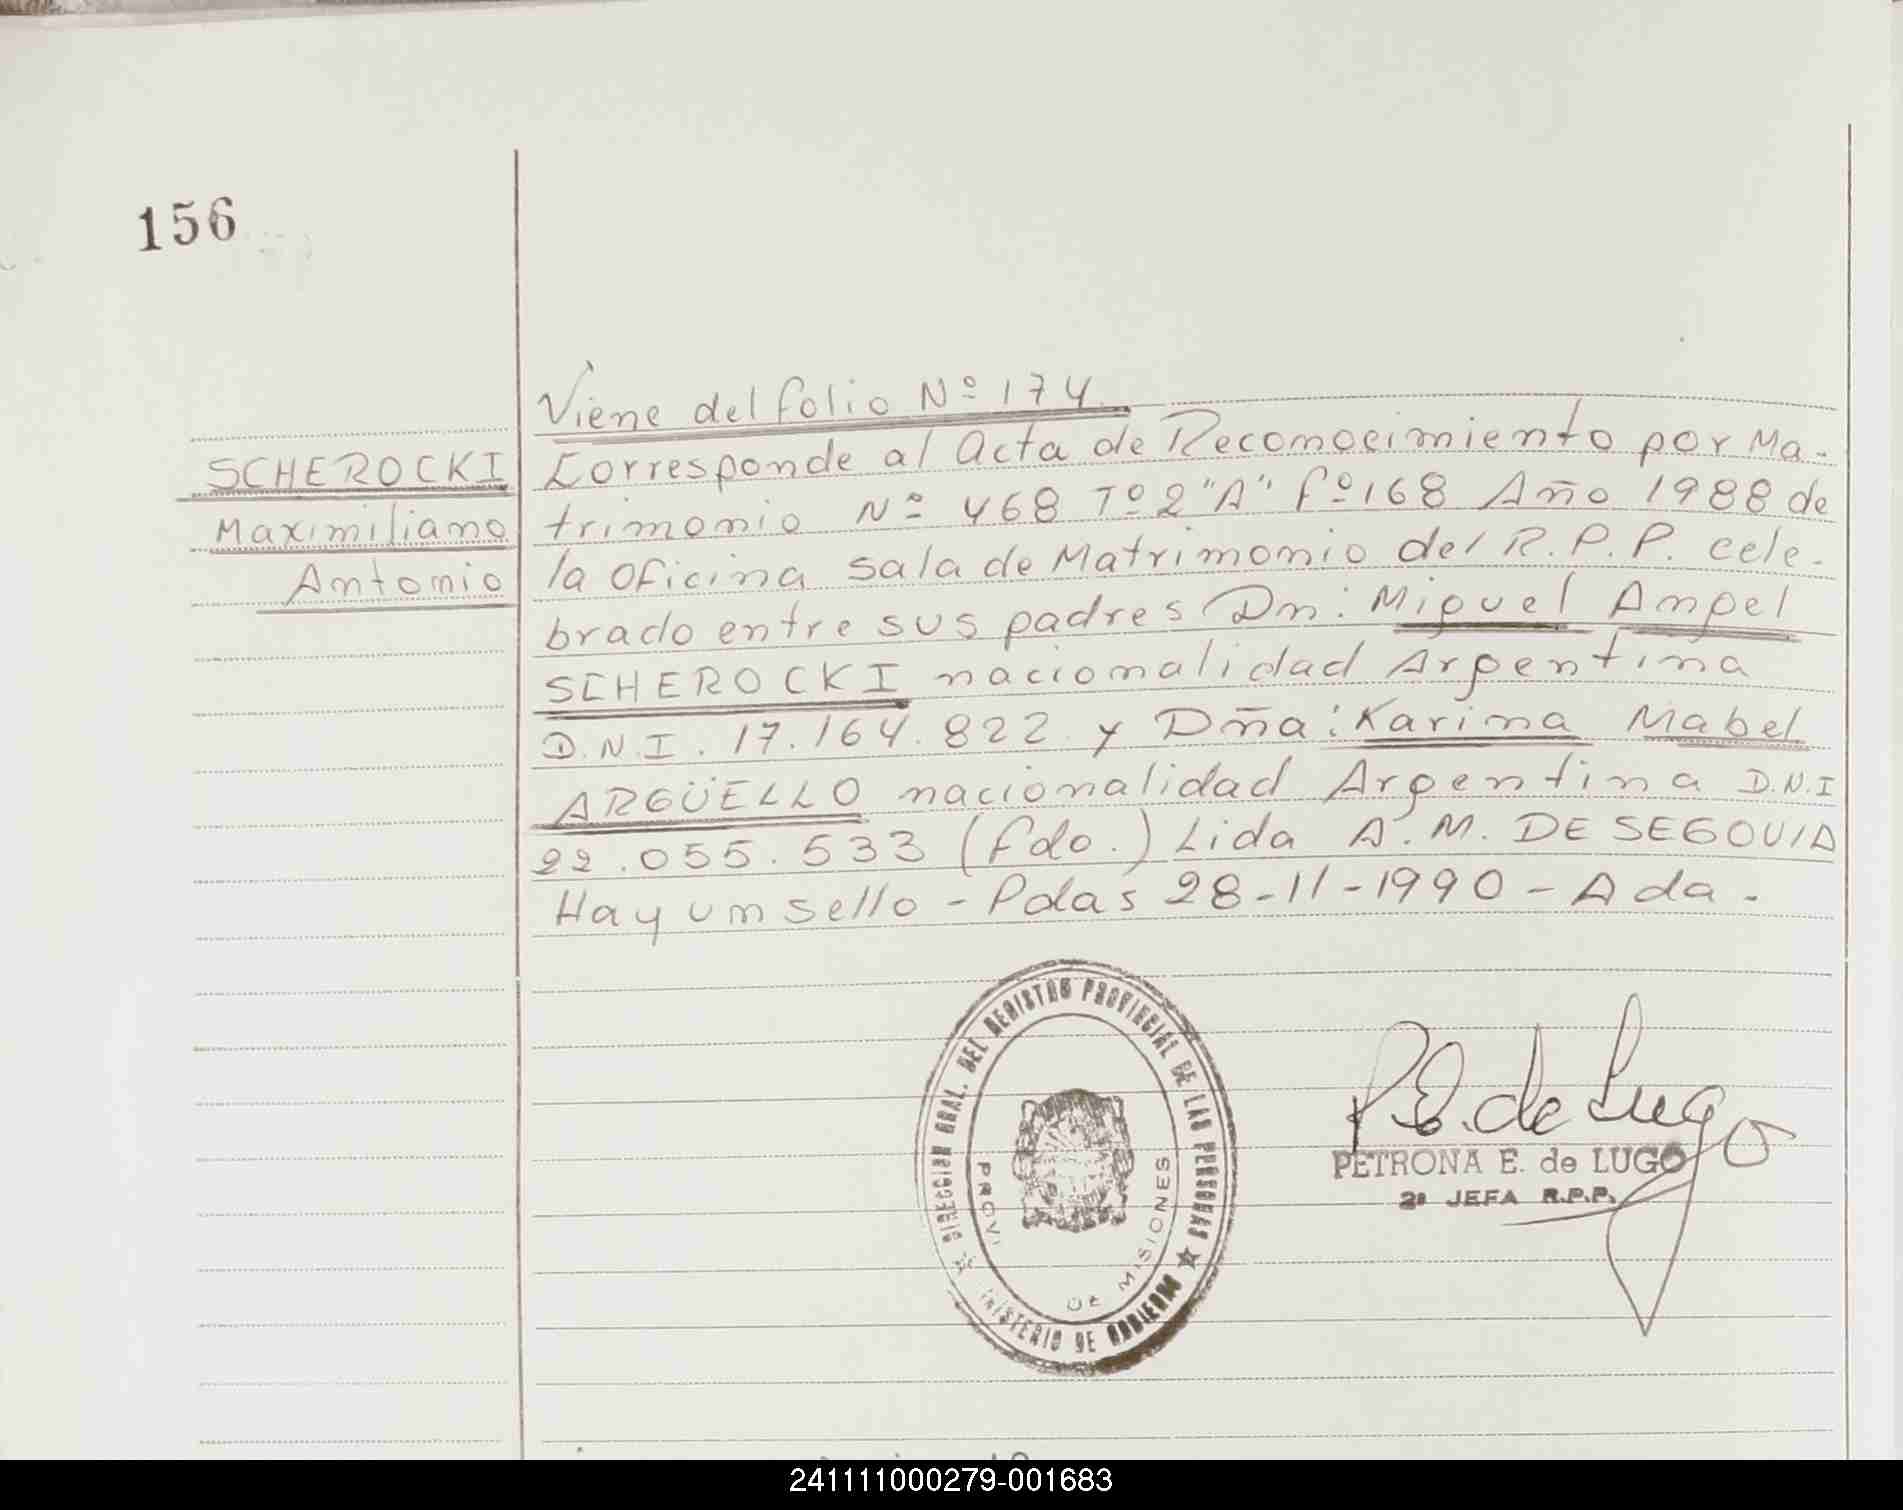 156
Viene del folio Nº 174.
SCHEROCKI
Maximiliano
Antonio
Corresponde al Acta de Reconocimiento por Ma-
trimonio Nº 468 Tº 2 "A" Fº 168 Año 1988 de
la oficina sala de Matrimonio del R.P.P. cele-
brado entre sus padres Dn: Miguel Angel
SCHEROCKI nacionalidad Argentina
D.N.I. 17.164.822 y Dña: Karina Mabel
ARGÜELLO nacionalidad Argentina D.N.I
22.055.533 (Fdo.) Lida A. M. DE SEGOVIA
Hay un sello - Pdas 28-11-1990 - Ada.
DIRECCION GRAL. DEL REGISTRO PROVINCIAL DE LAS PERSONAS
INISTERIO DE GOBIERNO
PROVI DE MISIONES
P.E. de Lugo
PETRONA E. de LUGO
2ª JEFA R.P.P.
241111000279-001683